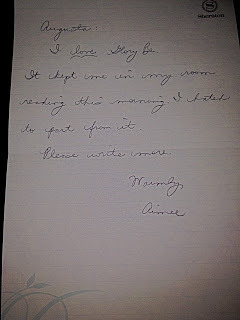 Sheraton
Augusta
I love Glory Be.
It kept me in my room
reading this morning. I hated
to part from it.
Please write more.
Warmly,
Aimee